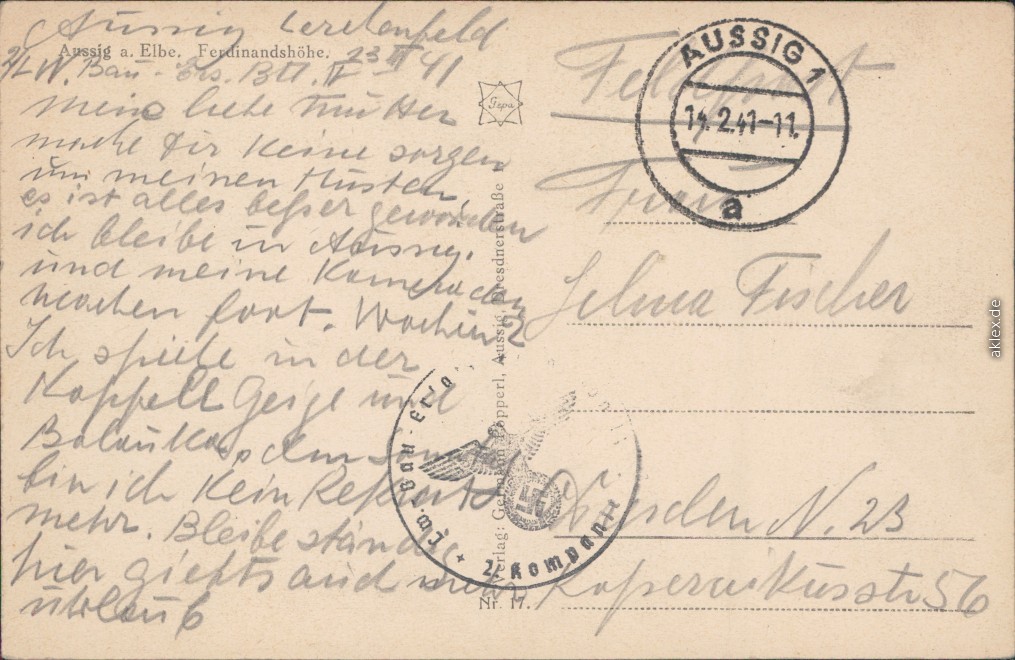 Aussig
Aussig a. Elbe. Ferdinandshöhe.
2/LW. Bau-Ers. Btl. IV 23 II 41
Meine liebe Mutter
mache dir keine sorgen
um meinen Husten,
es ist alles beßer geworden
ich bleibe in Aussig.
und meine Kameraden
machen fort. Wochen 2
Ich spiele in der
Kappell Geige und
bin ich kein Rekrut
mehr. Bleibe ständig
hier giebts auch mehr
uhrlaub
Feldpost
Frau
Selma Fischer
Dresden N. 23
Kopernikusstr 56
AUSSIG 1
14.2.41-11.
a
Verlag: Germann Popperl, Aussig, Dresdnerstraße
Nr. 17.
Lw. Bau Ers.
2. Kompanie
aklex.de